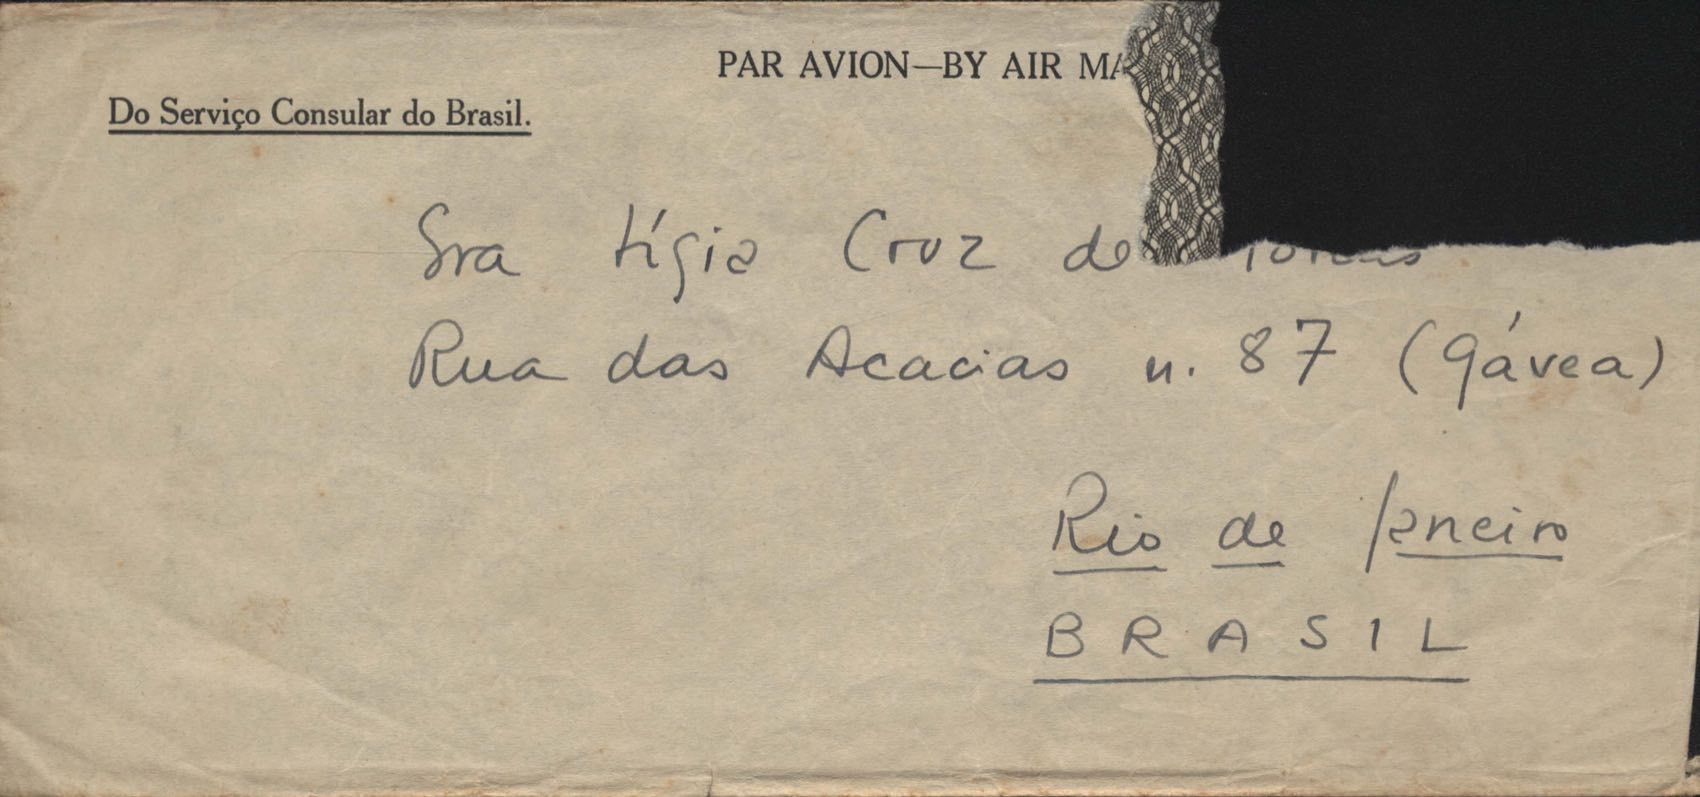 PAR AVION—BY AIR MA
Do Serviço Consular do Brasil.
Sra Lígia Cruz de
Rua das Acacias n. 87 (Gávea)
Rio de Janeiro
BRASIL